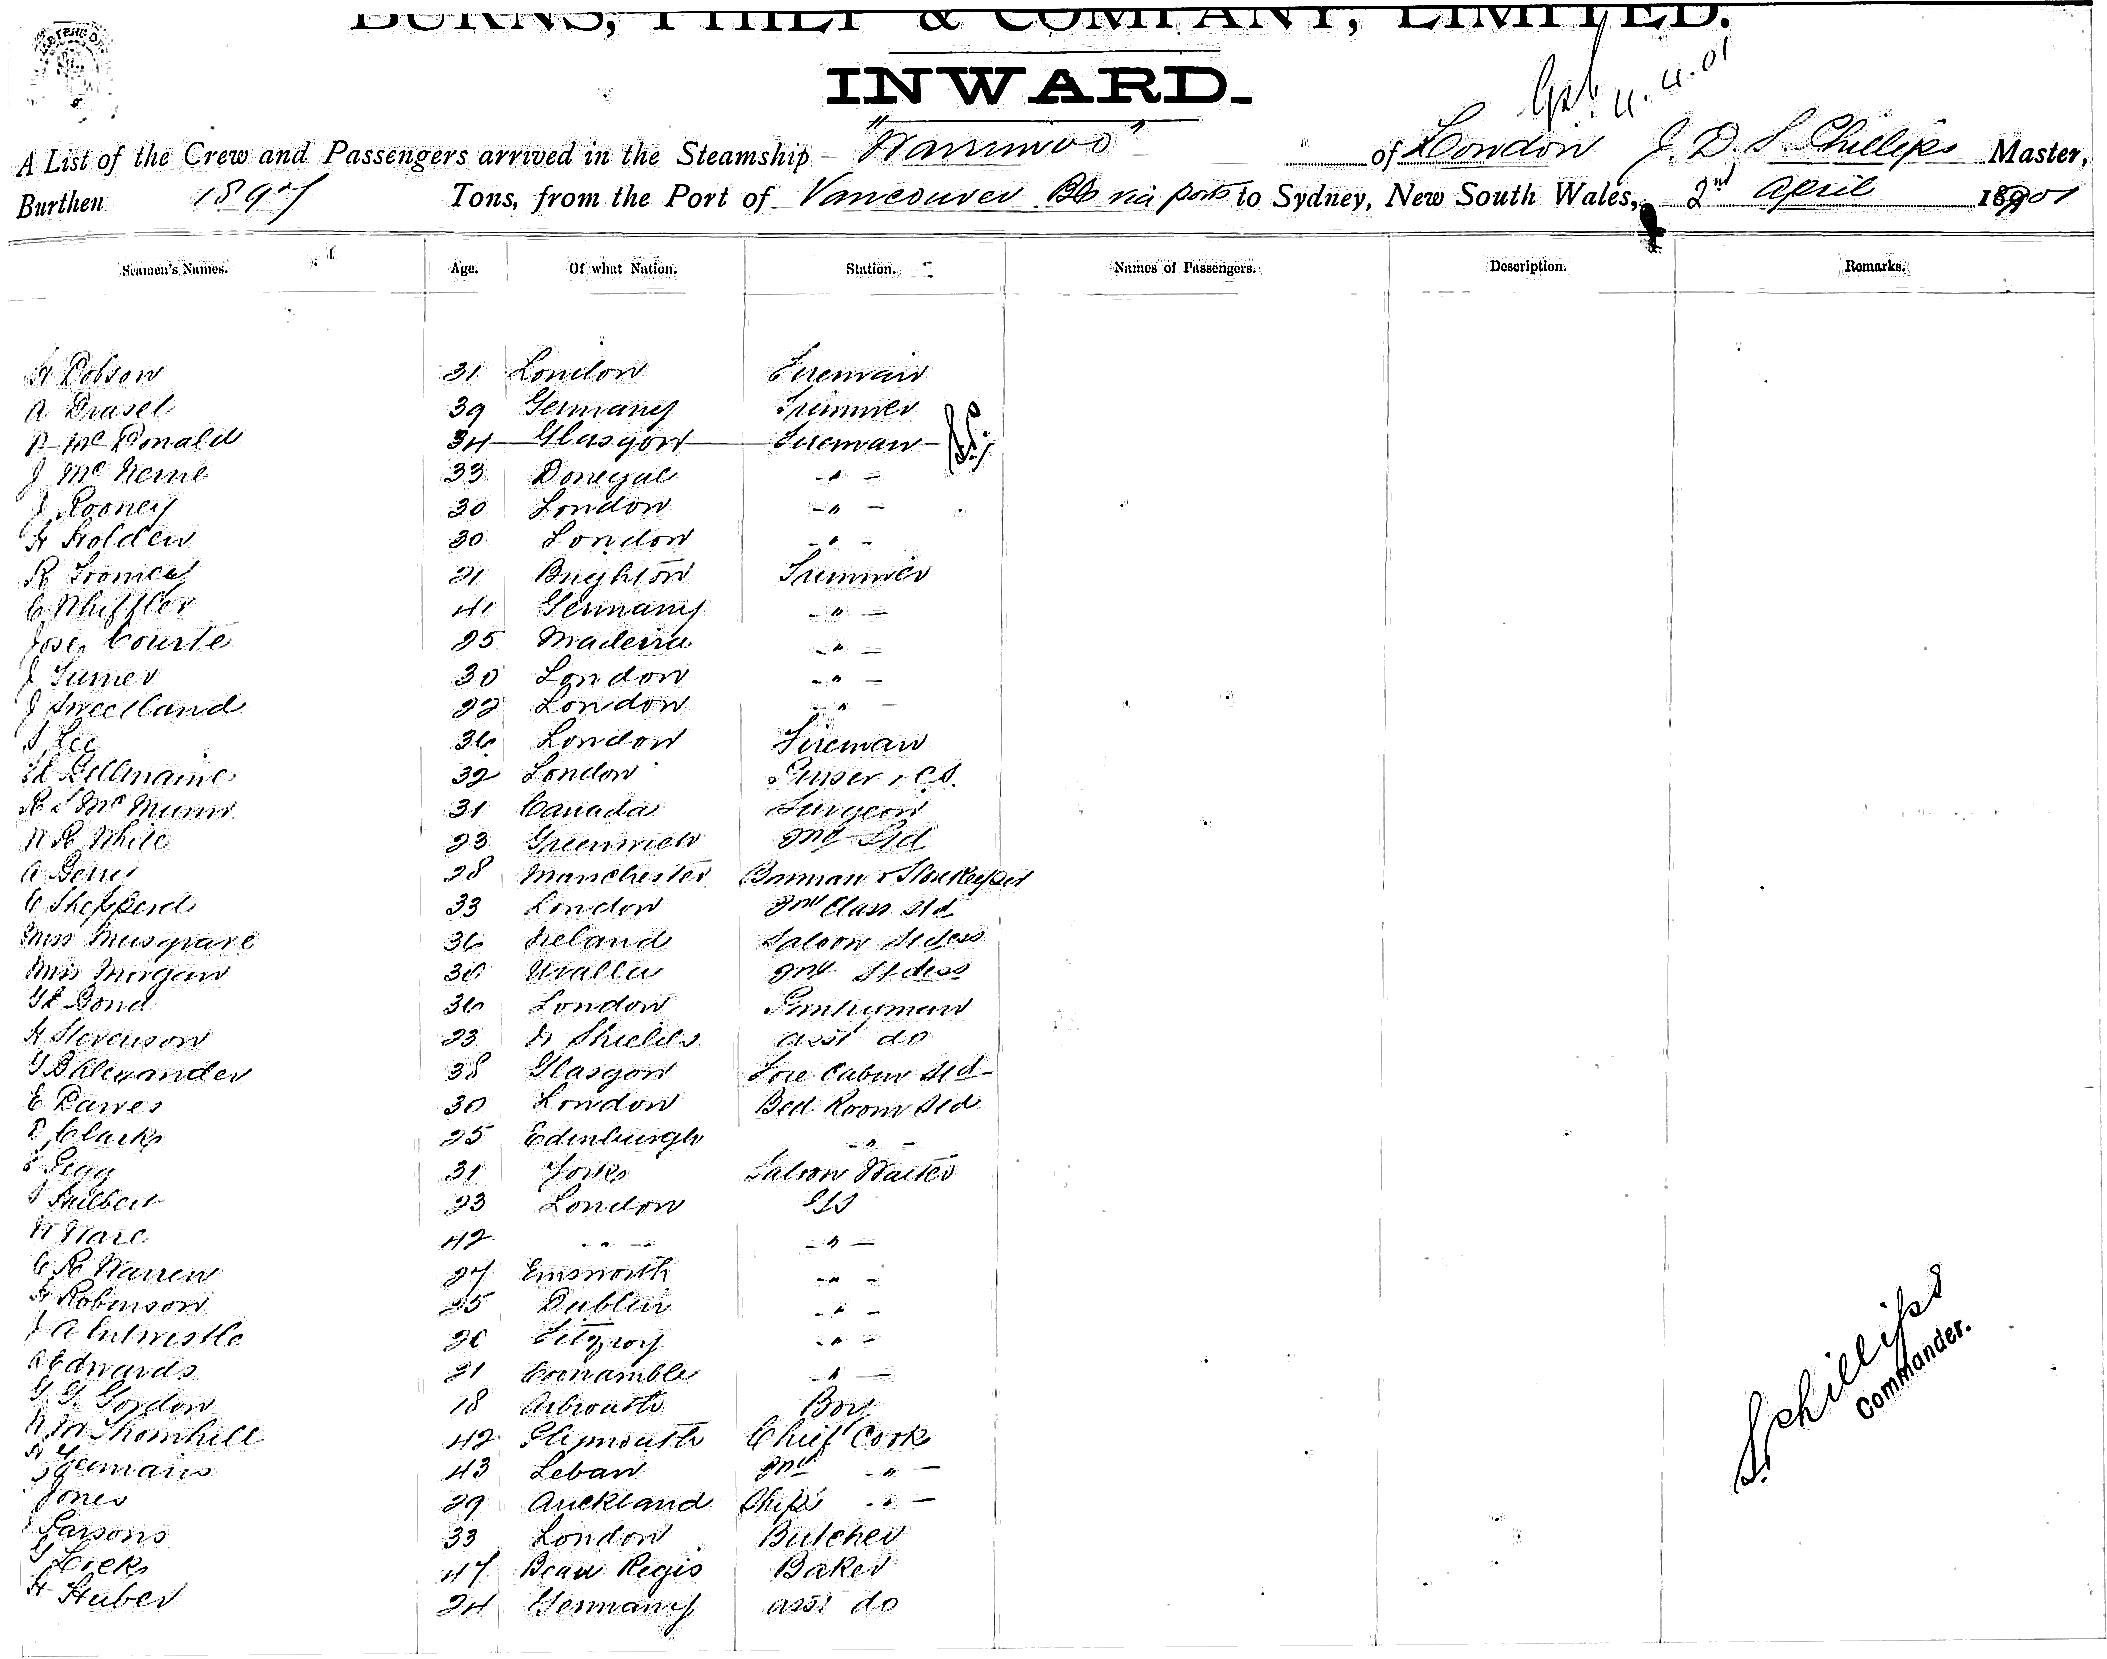 BURNS, PHILP & COMPANY, LIMITED.
INWARD.
A List of the Crew and Passengers arrived in the Steamship "Warrimoo" of London J. D. S. Phillips Master,
Burthen 1897 Tons, from the Port of Vancouver BC via ports to Sydney, New South Wales, 2nd April 1901
Seamen's Names. Age. Of what Nation. Station. Names of Passengers. Description. Remarks.
H Robson 31 London Fireman
A Drusel 39 Germany Trimmer
R McDonald 34 Glasgow Fireman
J Mc 33 Donegal " 
J Rooney 30 London "
H Holden 30 London "
R 21 Brighton Trimmer
C Whiffler 41 Germany "
Jose Courte 25 Madeira "
J Turner 30 London "
J Sweetland 22 London "
Lee 36 London Fireman
Bellmaine 32 London Purser & C.S.
R S McMunn 31 Canada Surgeon
W R White 23 Greenwich 2nd Std
A 28 Manchester Barman & Storekeeper
C Shepperd 33 London 2nd Class Std
Miss Musgrave 36 Ireland Saloon Stdess
Mrs Morgan 36 Uralla 2nd Stdess
Bond 36 London Pantryman
H Stevenson 23 N Shields asst do
G B Alexander 38 Glasgow Fore Cabin Std
E Dawes 30 London Bed Room Std
E Clark 25 Edinburgh "
Pegg 31 York Saloon Waiter
Philbert 23 London
W Ware 42 " "
C R Warren 27 Emsworth "
H Robinson 25 Dublin "
J A Entwistle 26 Fitzroy "
A Edwards 21 Coonamble "
G G Gordon 18 Arbroath Boy
W M Thornhill 42 Plymouth Chief Cook
H Yeomans 43 Leban 2nd "
Jones 29 Auckland Ships "
Parsons 33 London Butcher
G Lock 47 Beau Regis Baker
H Huber 24 Germany asst do
S Phillips
Commander.